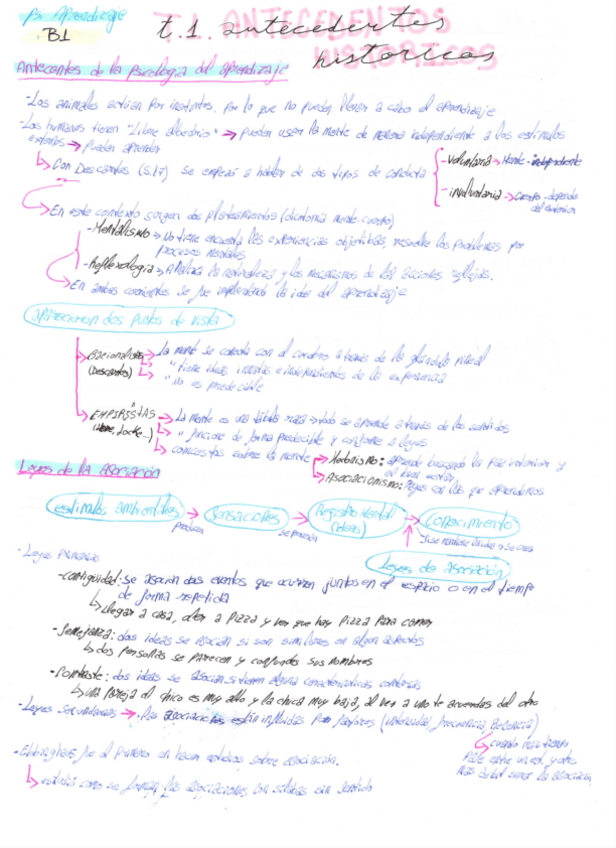 Psi Aprendizaje
B1
T.1. ANTECEDENTES HISTORICOS
t.1. antecedentes
historicos
Antecedentes de la psicología del aprendizaje
-Los animales actúan por instintos, por lo que no pueden llevar a cabo el aprendizaje
-Los humanos tienen "libre albedrío" → pueden usar la mente de manera independiente a los estímulos
externos → pueden aprender
Con Descartes (S.17) se empezó a hablar de dos tipos de conducta
-Voluntaria → Mente - independiente
-involuntaria → Cuerpo - depende
del exterior
En este contexto surgen dos planteamientos (dicotomía mente-cuerpo)
-Mentalismo → No tiene en cuenta las experiencias objetivas, resuelve los problemas por
procesos mentales
-Reflexología → Analiza la naturaleza y los mecanismos de las acciones reflejas.
En ambas corrientes se fue implantando la idea del aprendizaje
aparecieron dos puntos de vista
Racionalistas → La mente se conecta con el cuerpo a través de la glándula pineal
(Descartes) → " tiene ideas innatas e independientes de la experiencia
" no es predecible
EMPIRISTAS → La mente es una tabula rasa → todo se aprende a través de los sentidos
(Hume, Locke...) → " funciona de forma predecible y conforme a leyes
conceptos sobre la mente → Hedonismo: aprende buscando lo placentero y
Asociacionismo: Reglas con las que aprendemos
Leyes de la Asociación
estímulos ambientales → Sensaciones → Registro mental (ideas) → Conocimiento
producen
se produce
Leyes de asociación
· Leyes Primarias
-contigüidad: se asocian dos eventos que ocurren juntos en el espacio o en el tiempo
de forma repetida
llegar a casa, oler a pizza y ver que hay pizza para comer
-Semejanza: dos ideas se asocian si son similares en algún aspecto
dos personas se parecen y confundes sus nombres
-Contraste: dos ideas se asocian si tienen alguna característica contraria
una pareja el chico es muy alto y la chica muy baja, al ver a uno te acuerdas del otro
- Leyes Secundarias → las asociaciones están influidas por factores (intensidad, frecuencia, Recencia)
cuanto más tiempo
pase entre un est. y otro
más difícil será la asociación
- Ebbinghaus fue el primero en hacer estudios sobre asociación.
estudió como se forman las asociaciones con sílabas sin sentido